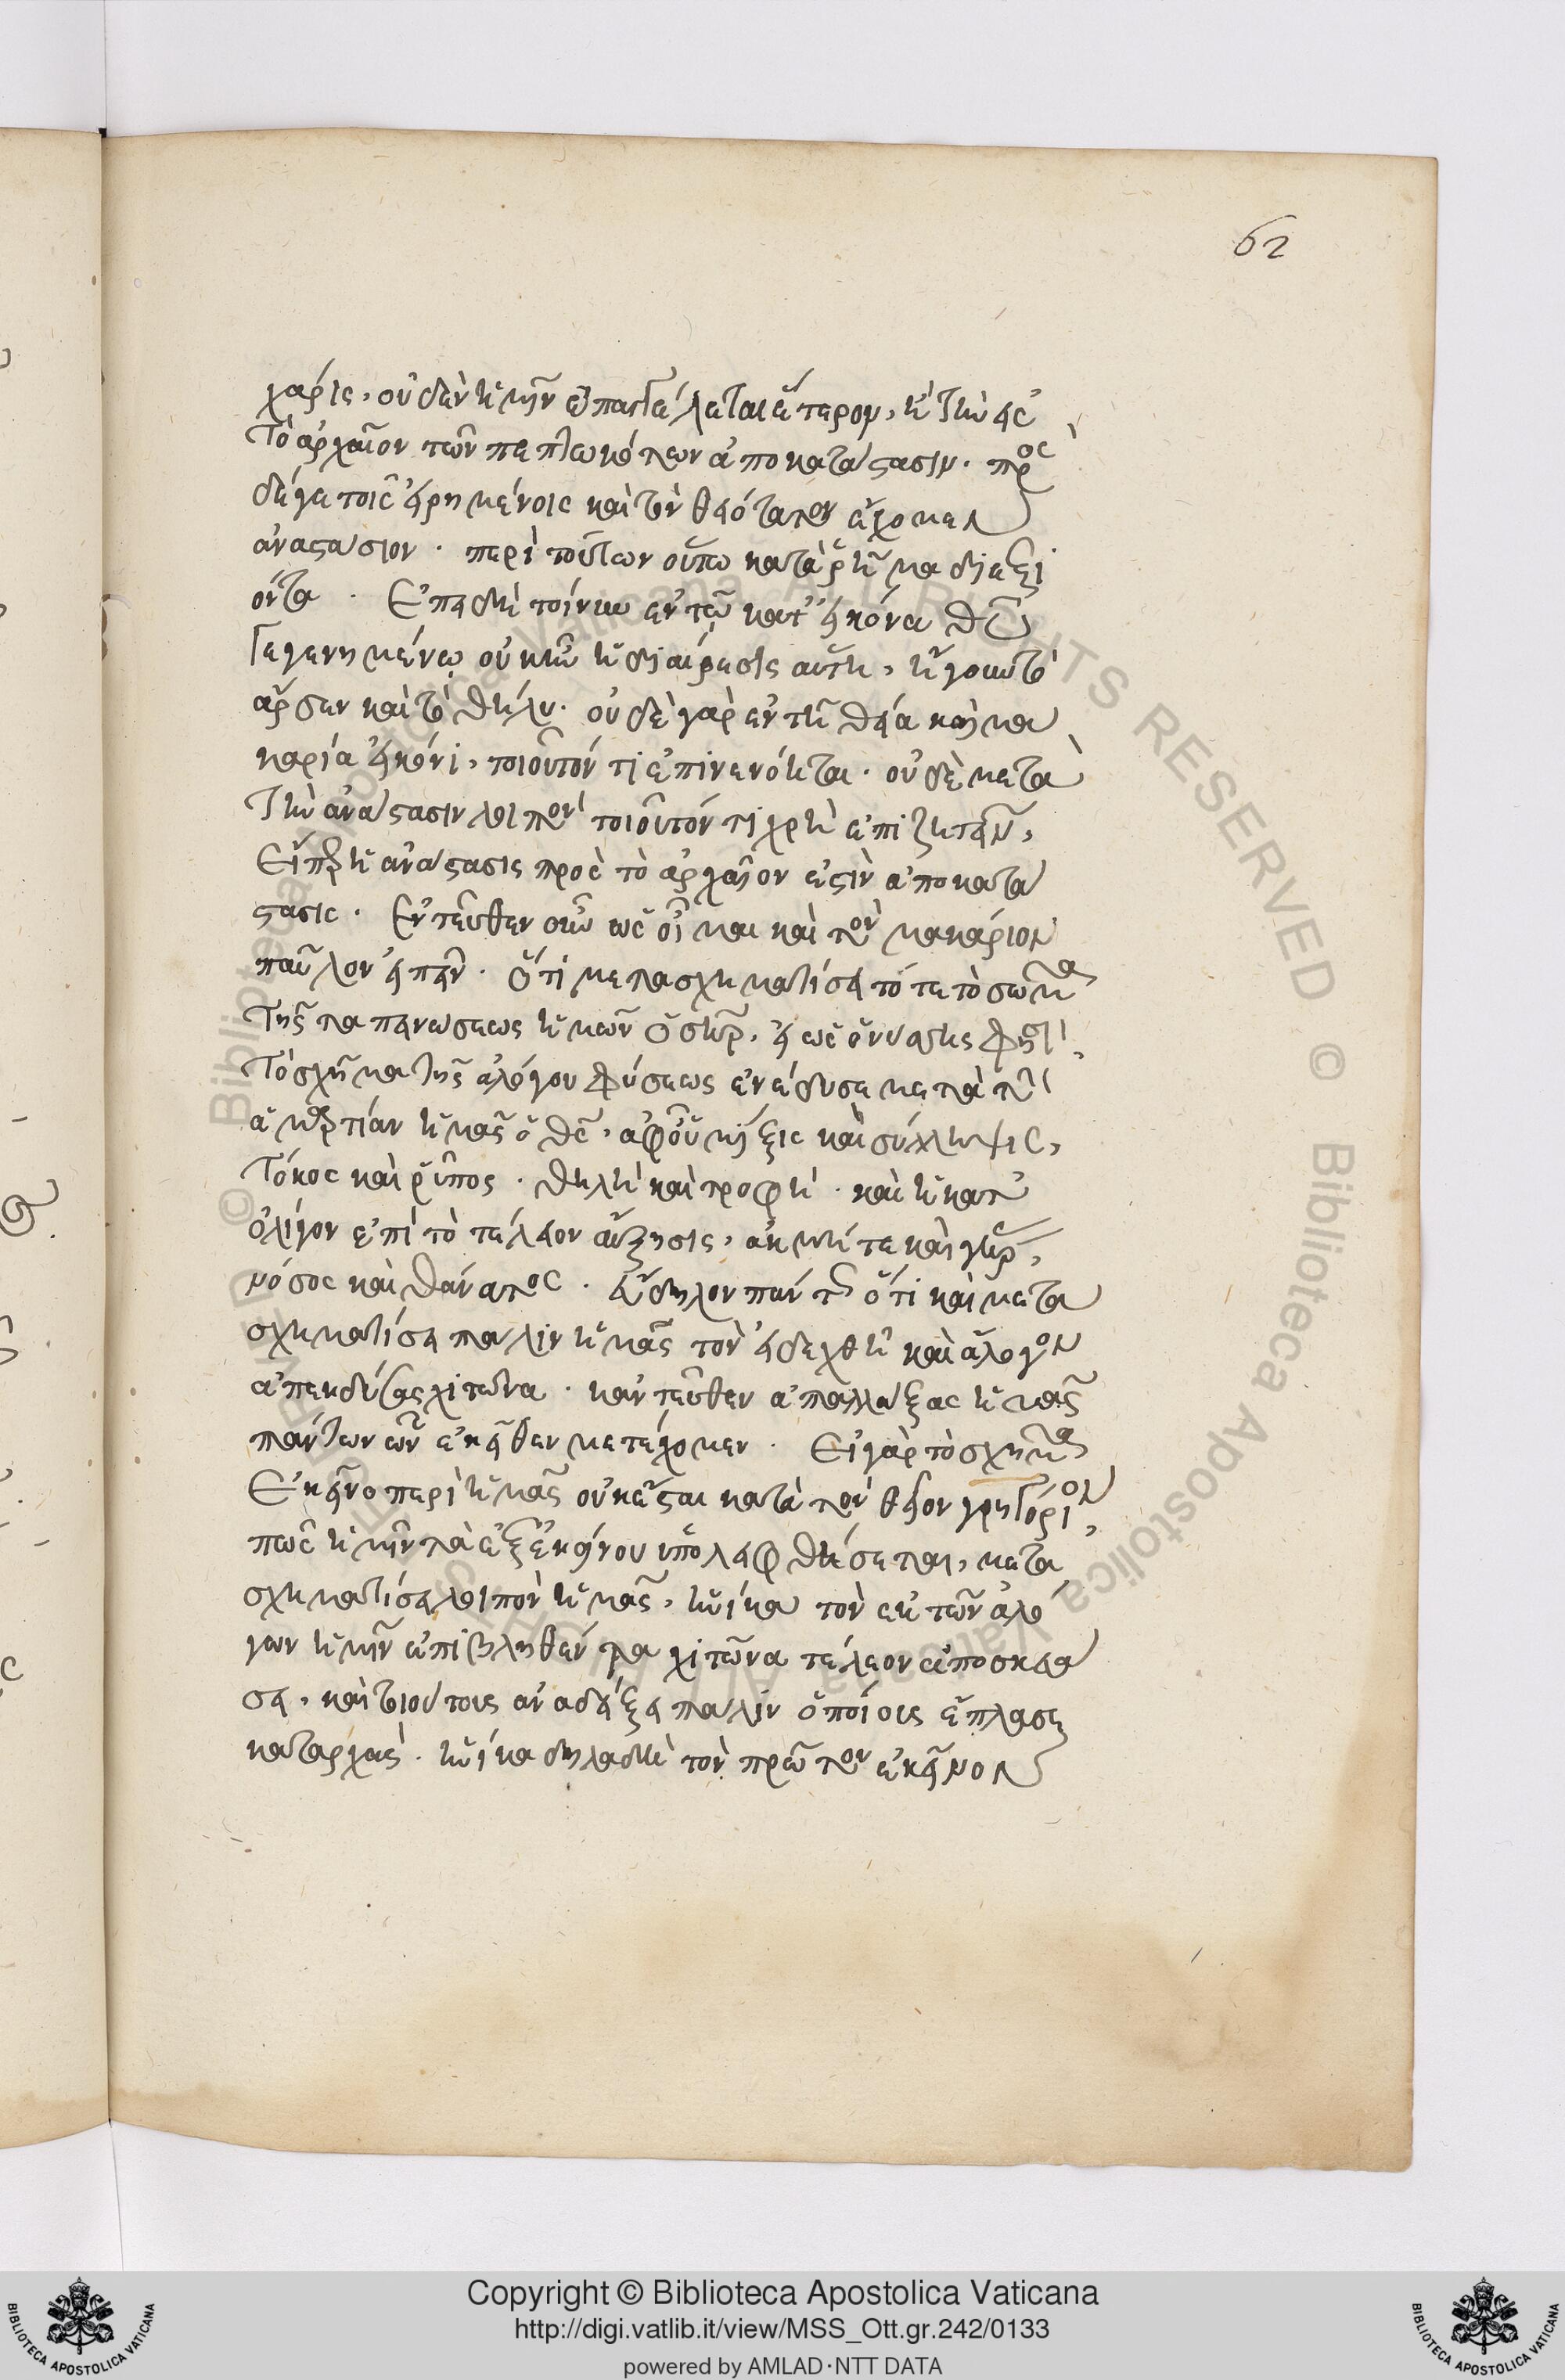 62
χάρις, οὐδὲν ἡμῖν ἐπαγγέλεται ἕτερον, ἢ τὴν εἰς
τὸ ἀρχαῖον τῶν πεπτωκότων ἀποκατάστασιν. πρὸς
δέ γε τοῖς εἰρημένοις καὶ τὸν θειότατον ἔχομεν
ἀναστάσιον. περὶ τούτων οὕπω κατὰ ῥῆμα διεξι
όντα. Ἐπειδὴ τοίνυν ἐν τῶ κατ' εἰκόνα θῦ
γεγενημένω οὐκ ἦν ἡ διαίρεσις αὕτη, ἤγουν τὸ
ἄρσεν καὶ τὸ θῆλυ. οὐδὲ γὰρ ἐν τῆ θεία καὶ μα
καρία εἰκόνι, τοιοῦτόν τι ἐπινενόηται. οὐδὲ μετὰ
τὴν ἀνάστασιν λοιπὸν τοιοῦτόν τι χρὴ ἐπιζητεῖν,
Εἴπερ ἡ ἀνάστασις πρὸς τὸ ἀρχαῖόν ἐστιν ἀποκατά
στασις. Ἐντεῦθεν οὖν ὡς οἶμαι καὶ τὸν μακάριον
παῦλον εἰπεῖν. ὅτι μετασχηματίσει τότε τὸ σῶμα
τῆς ταπεινώσεως ἡμῶν ὁ σωτὴρ, εἰ ὡς ὁ νύσσης φησὶ,
τὸ σχῆμα τῆς ἀλόγου φύσεως ἐνέδυσε μετὰ τὴν
ἁμαρτίαν ἡμᾶς ὁ θς, ἀφ' οὗ μίξις καὶ σύλληψις,
τόκος καὶ ῥύπος. θηλὴ καὶ τροφὴ. καὶ ἡ κατ'
ὀλίγον ἐπὶ τὸ τέλειον αὔξησις, ἀκμή τε καὶ γῆρας,
νόσος καὶ θάνατος. εὔδηλον πάντως ὅτι καὶ μετα
σχηματίσει πάλιν ἡμᾶς τὸν εἰδεχθῆ καὶ ἄλογον
ἀπεκδύσας χιτῶνα. κἀντεῦθεν ἀπαλλάξας ἡμᾶς
πάντων ὧν ἐκεῖθεν μετέχομεν. Εἰ γὰρ τὸ σχῆμα
Ἐκεῖνο περὶ ἡμᾶς οὐκ ἔσται κατὰ τὸν θεῖον γρηγόριον,
πῶς ἡμῖν τὰ ἐξ ἐκείνου ὑπολειφθήσεται, μετα
σχηματίσει λοιπὸν ἡμᾶς, ἡνίκα τὸν ἐκ τῶν ἀλό
γων ἡμῖν ἐπιβληθέντα χιτῶνα τέλεον ἀποσκευά
σει, καὶ τοιούτους ἀναδείξει πάλιν ὁποίους ἔπλασε
καταρχὰς. ἡνίκα δηλαδὴ τὸν πρῶτον ἐκεῖνον
Copyright © Biblioteca Apostolica Vaticana
http://digi.vatlib.it/view/MSS_Ott.gr.242/0133
powered by AMLAD·NTT DATA